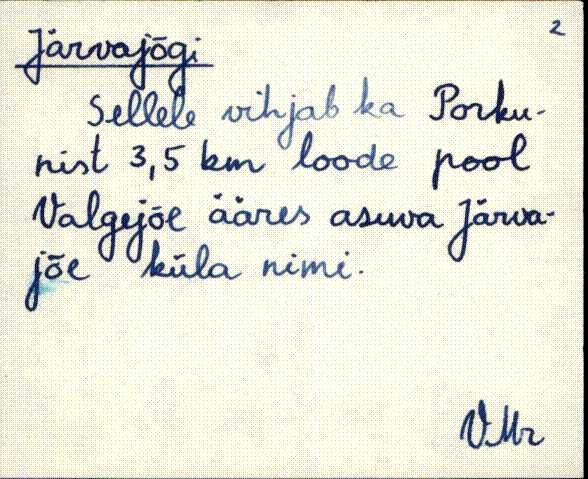 2
Järvajõgi
Sellele vihjab ka Porku-
nist 3,5 km loode pool
Valgejõe ääres asuva Järva-
jõe küla nimi.
VMr